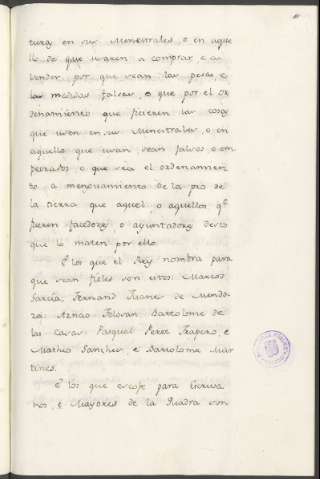 tura en sus Menestrales, o en aque
llo de que usaren a comprar, e a
vender, por que sean las pesas, e
las medidas falsas, o que por el or
denamiento que ficieren las cosas
que usen en sus Menestrales, o en
aquello que usan sean falsos o em
peorados o que sea el ordenamien
to a menguamiento de la pro de
la tierra que aquel, o aquellos q.e
ficren facedores, o ayuntadores desto
que lo maten por ello.
E los que el Rey nombra para
que sean fieles son estos: Marcos
Garcia, Fernand Ivanes de Mendo
za: Aznao Tolosan Bartolome de
las Casas: Pasqual Perez Trapero, e
Matheo Sanchez, e Bartolome Mar
tines.
E los que escoje para Escriva
nos, e Mayores de la Quadra son